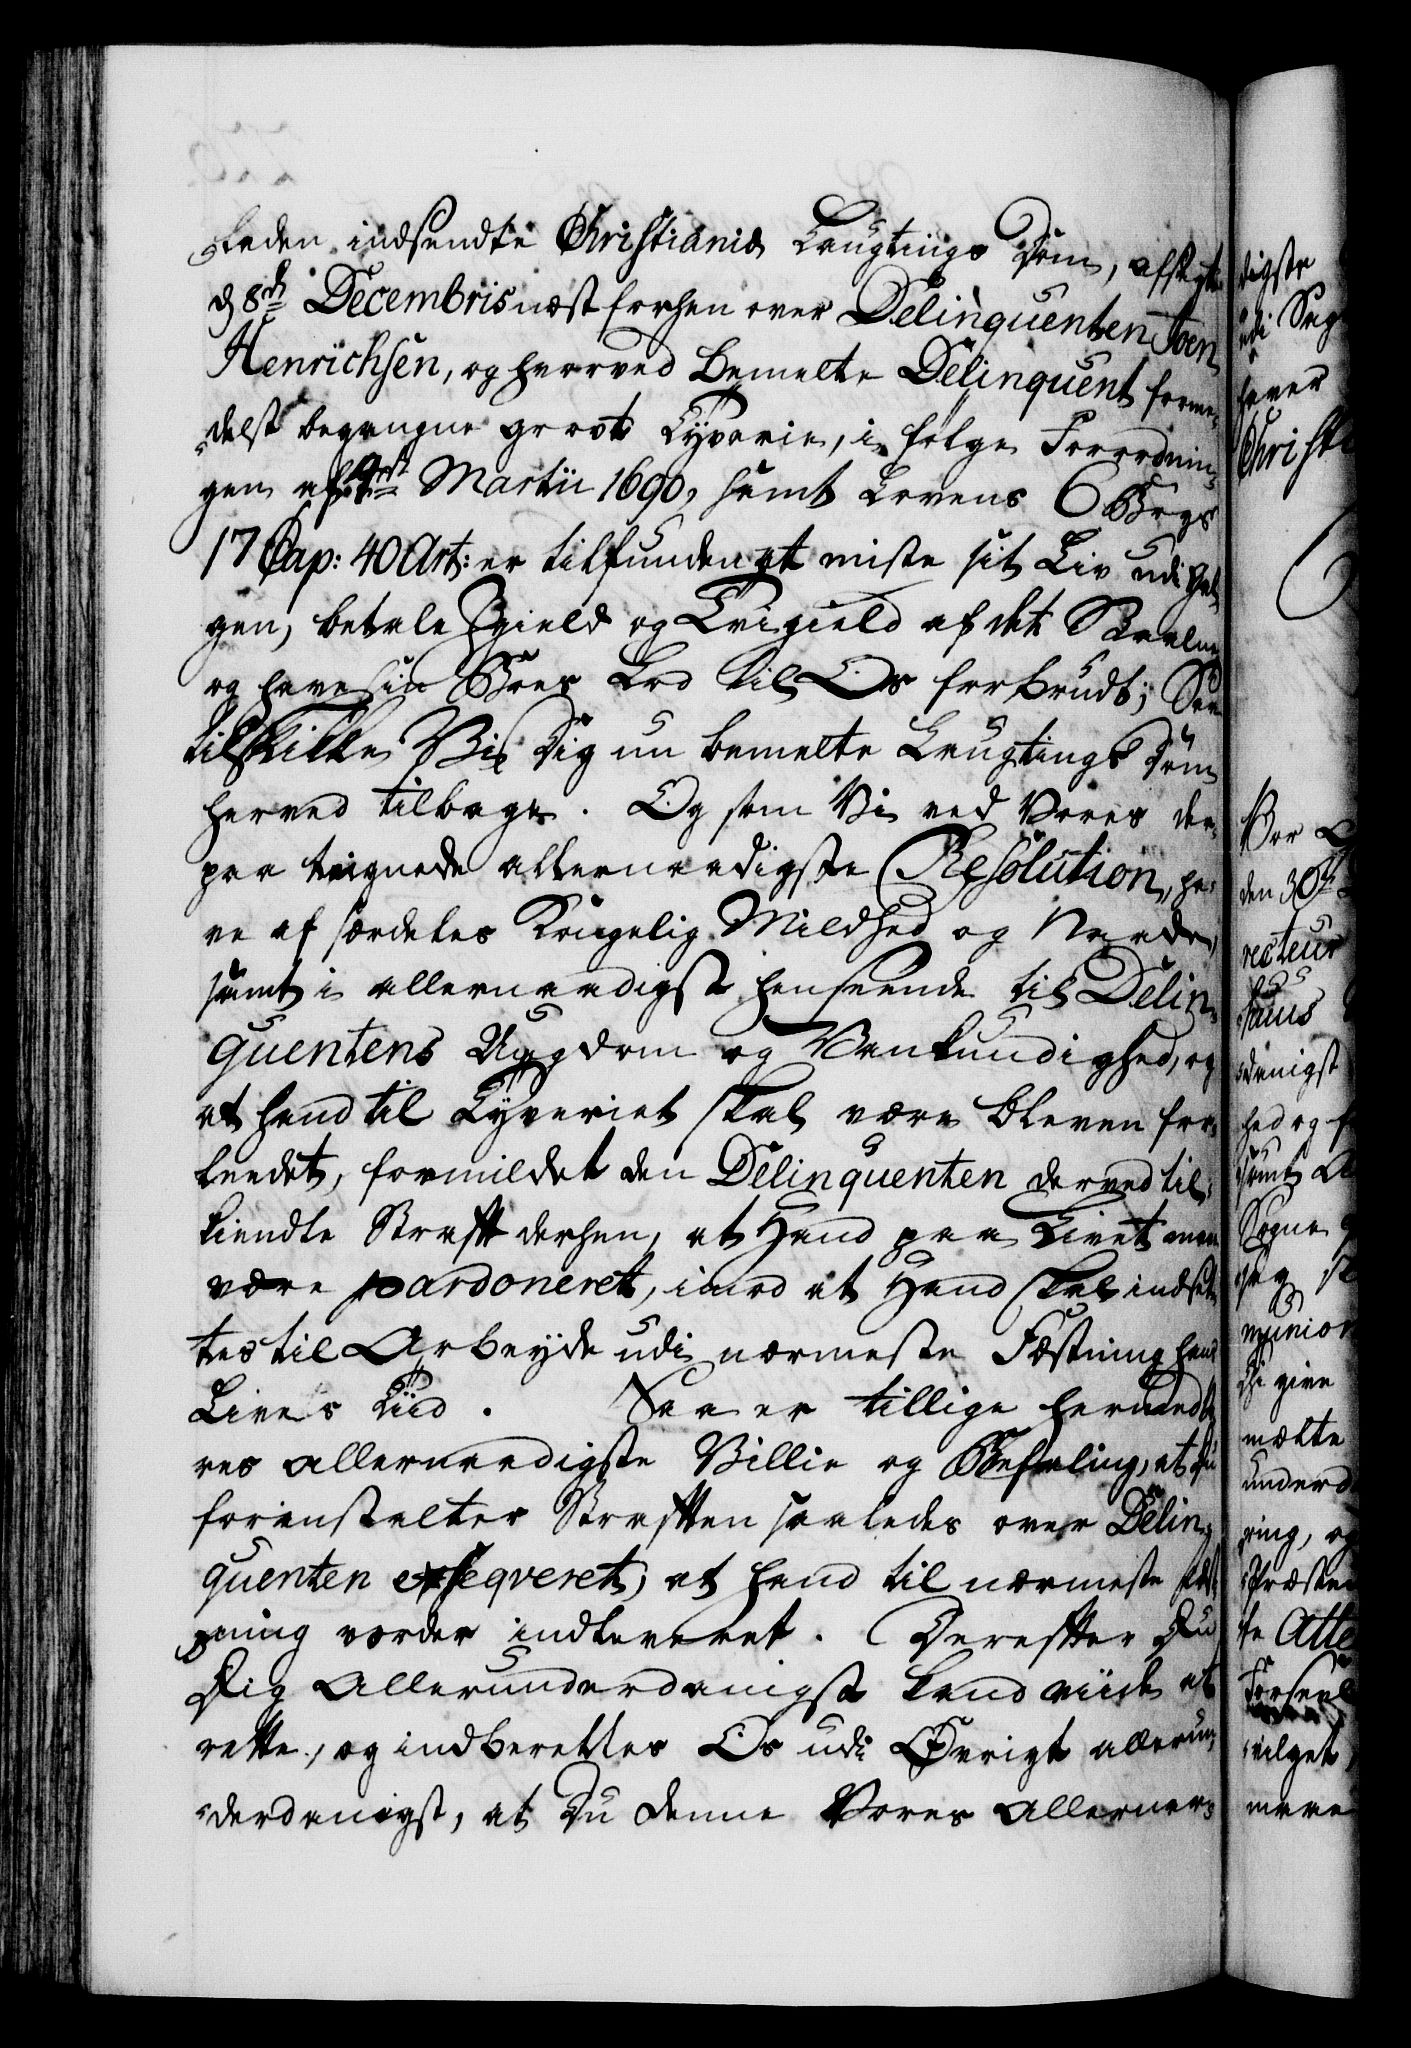 staden indsendte Christiania Laugtings Dom, afsagt
d 8de Decembris næst forhen over Delinquenten Iven
Henrichsen, og hvorved bemelte Delinquent forme-
delst begangne grovt Tyverie, i følge Forordnin-
gen af 4de Martii 1690, samt Lovens 6 Bogs
17 Cap: 40 Art: er tilfunden at miste sit Liv udi Gal-
gen, betale Igield og Tvigield af det Staalne
og have sin Boes Lod til Os forbrudt; Saa
tilskikke Vi Dig nu bemelte Laugtings Dom
herved tilbage. Og som Vi ved Vores der-
paa teignede allernaadigste Resolution, ha-
ve af særdeles Kongelig Mildhed og Naade,
samt i allernaadigst henseende til Delin-
quentens Ungdom og Vankundighed, og
at hand til Tyveriet skal være bleven for-
leedet, formildet den Delinquenten derved til-
kiendte Straff derhen, at Hand paa Livet maae
være pardoneret, imod at Hand skal indsæt-
tes til Arbeyde udi nærmeste Fæstning hans
Livs Tiid. Saa er tillige hermed Vo-
res allernaadigste Villie og Befaling, at Du
foranstalter Straffen saaledes over Delin-
quenten exseqveret, at hand til nærmeste Fæst-
ning vorder indleveret. Derefter Du
Dig allerunderdanigst kand viide at
rette, og indberettes Os udi Øvrigt allerun-
derdanigst, at Du denne Vores allernaa-